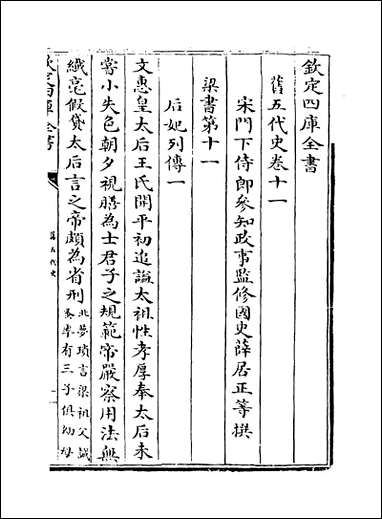 欽定四庫全書
舊五代史卷十一
宋門下侍郎參知政事監修國史薛居正等撰
梁書第十一
后妃列傳一
文惠皇太后王氏開平初追諡太祖性孝厚奉太后未
嘗小失色朝夕視膳為士君子之規範帝嚴察用法無
纎毫假貸太后言之帝頗為省刑北夢瑣言梁祖父誠
蚤卒有三子俱幼母
欽定四庫全書
舊五代史
一